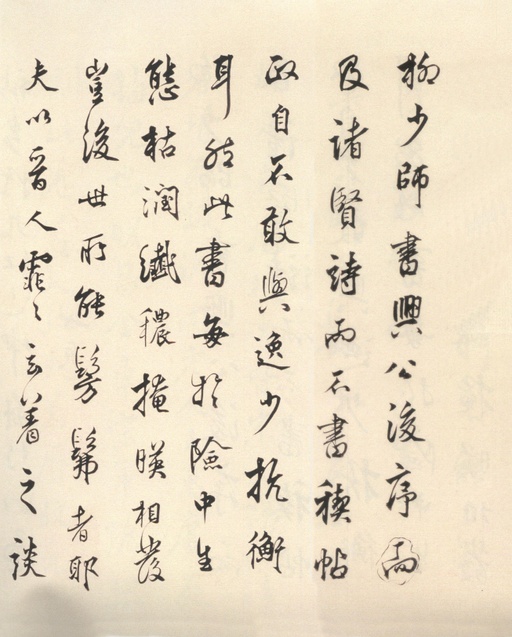 柳少師書興公後序而
及諸賢詩而不書禊帖
政自不敢與逸少抗衡
耳然此書每於險中生
態枯潤纖穠掩暎相發
豈後世所能髣髴者耶
夫以晉人霏〻玄著之談